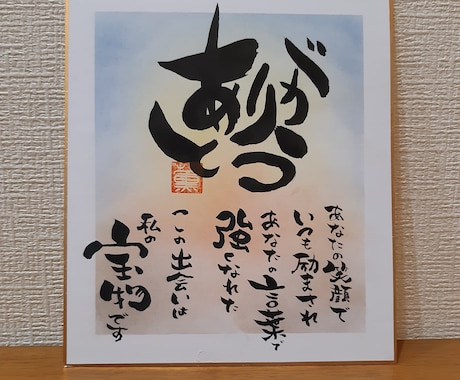 ありがとう
あなたの笑顔で
いつも励まされ
あなたの言葉で
強くなれた
この出会いは
私の
宝物です